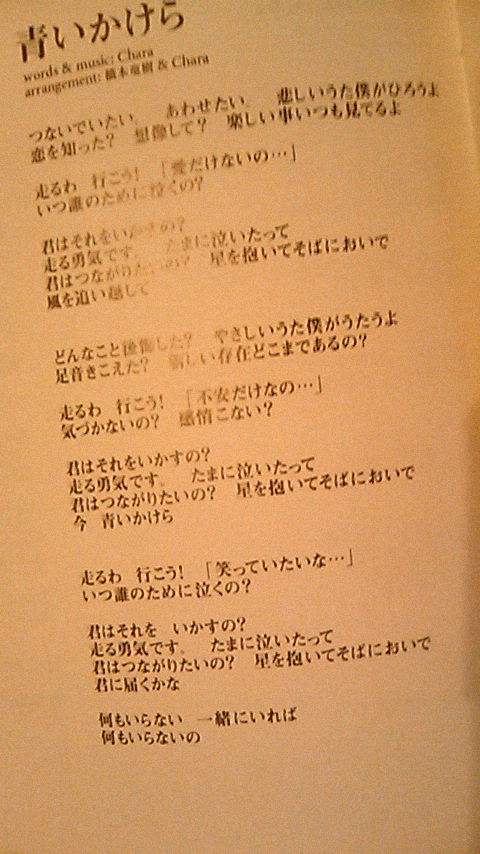 青いかけら
words & music: Chara
arrangement: 橋本竜樹 & Chara
つないでいたい。 あわせたい。 悲しいうた僕がひろうよ
恋を知った? 想像して? 楽しい事いつも見てるよ
走るわ 行こう! 「愛だけないの…」
いつ誰のために泣くの?
君はそれをいかすの?
走る勇気です。 たまに泣いたって
君はつながりたいの? 星を抱いてそばにおいで
風を追い越して
どんなこと後悔した? やさしいうた僕がうたうよ
足音きこえた? 新しい存在どこまであるの?
走るわ 行こう! 「不安だけなの…」
気づかないの? 感情こない?
君はそれをいかすの?
走る勇気です。 たまに泣いたって
君はつながりたいの? 星を抱いてそばにおいで
今 青いかけら
走るわ 行こう! 「笑っていたいな…」
いつ誰のために泣くの?
君はそれを いかすの?
走る勇気です。 たまに泣いたって
君はつながりたいの? 星を抱いてそばにおいで
君に届くかな
何もいらない 一緒にいれば
何もいらないの